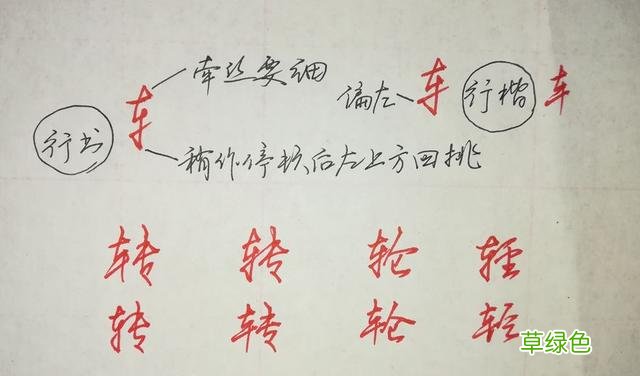 牵丝要细
行书 车 偏左 车 行楷 车
稍作停顿后左上方回挑
转 转 轮 轻
转 转 轮 轻
草绿色